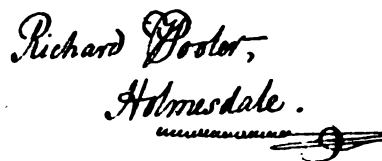 Richard Pooler,
Holmesdale.